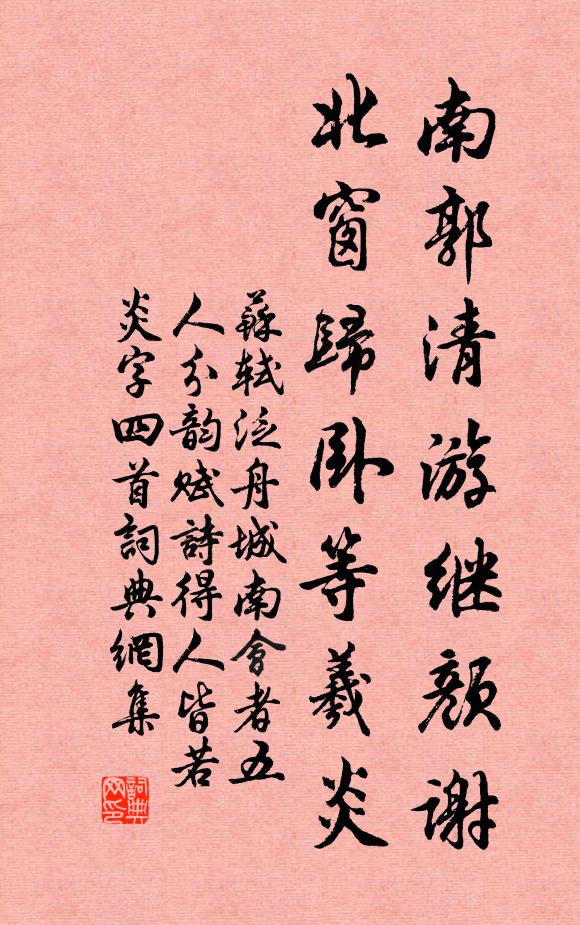 南郭清游继颜谢
北窗歸卧等羲炎
蘇軾泛舟城南會者五
人分韵赋詩得人皆若
炎字四首詞典網集
詞典网印